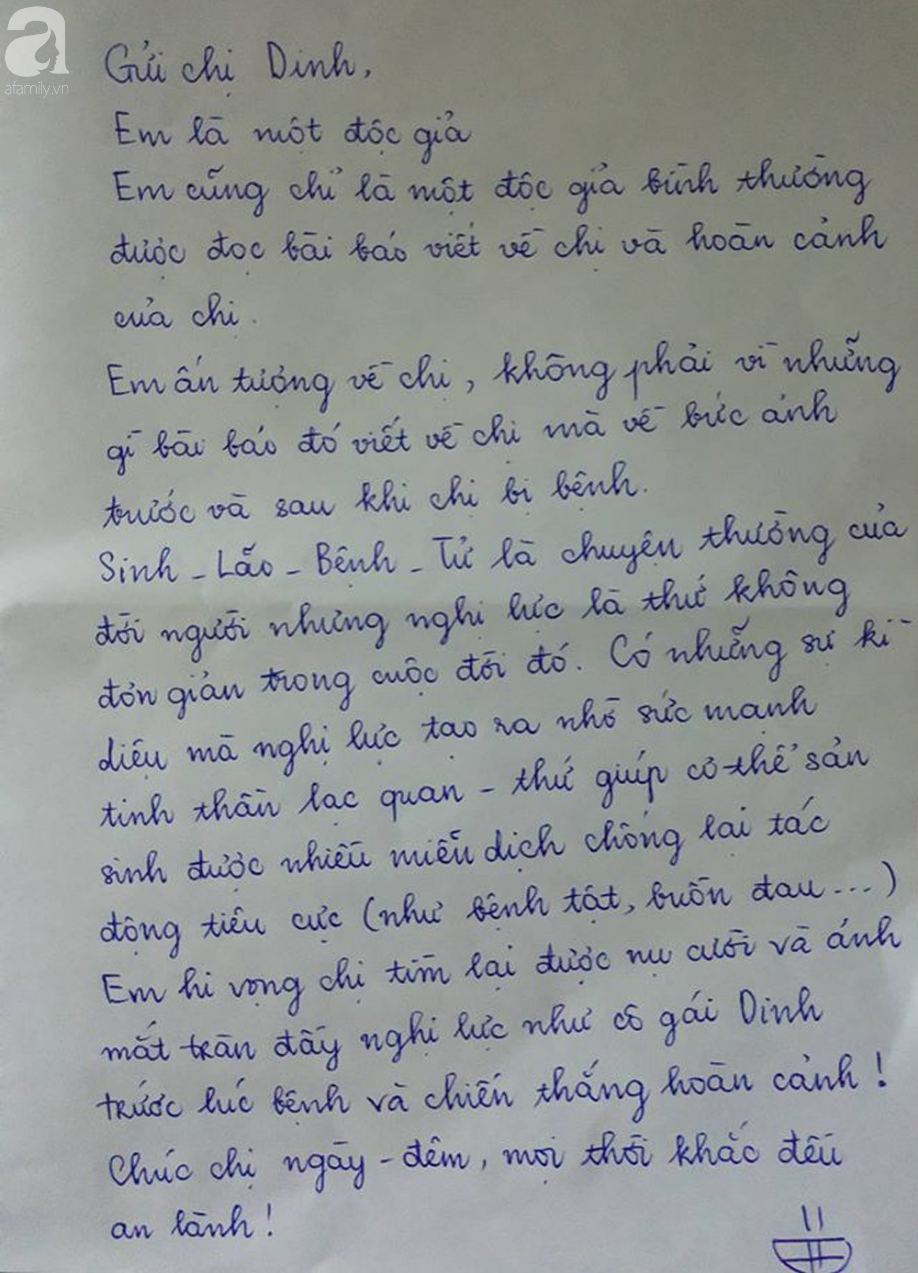 afamily.vn
Gửi chị Dinh,
Em là một độc giả
Em cũng chỉ là một độc giả bình thường
được đọc bài báo viết về chị và hoàn cảnh
của chị.
Em ấn tượng về chị, không phải vì những
gì bài báo đó viết về chị mà về bức ảnh
trước và sau khi chị bị bệnh.
Sinh - Lão - Bệnh - Tử là chuyện thường của
đời người nhưng nghị lực là thứ không
đơn giản trong cuộc đời đó. Có những sự kì
diệu mà nghị lực tạo ra nhờ sức mạnh
tinh thần lạc quan - thứ giúp cơ thể sản
sinh được nhiều miễn dịch chống lại tác
động tiêu cực (như bệnh tật, buồn đau...)
Em hi vọng chị tìm lại được nụ cười và ánh
mắt tràn đầy nghị lực như cô gái Dinh
trước lúc bệnh và chiến thắng hoàn cảnh!
Chúc chị ngày - đêm, mọi thời khắc đều
an lành!